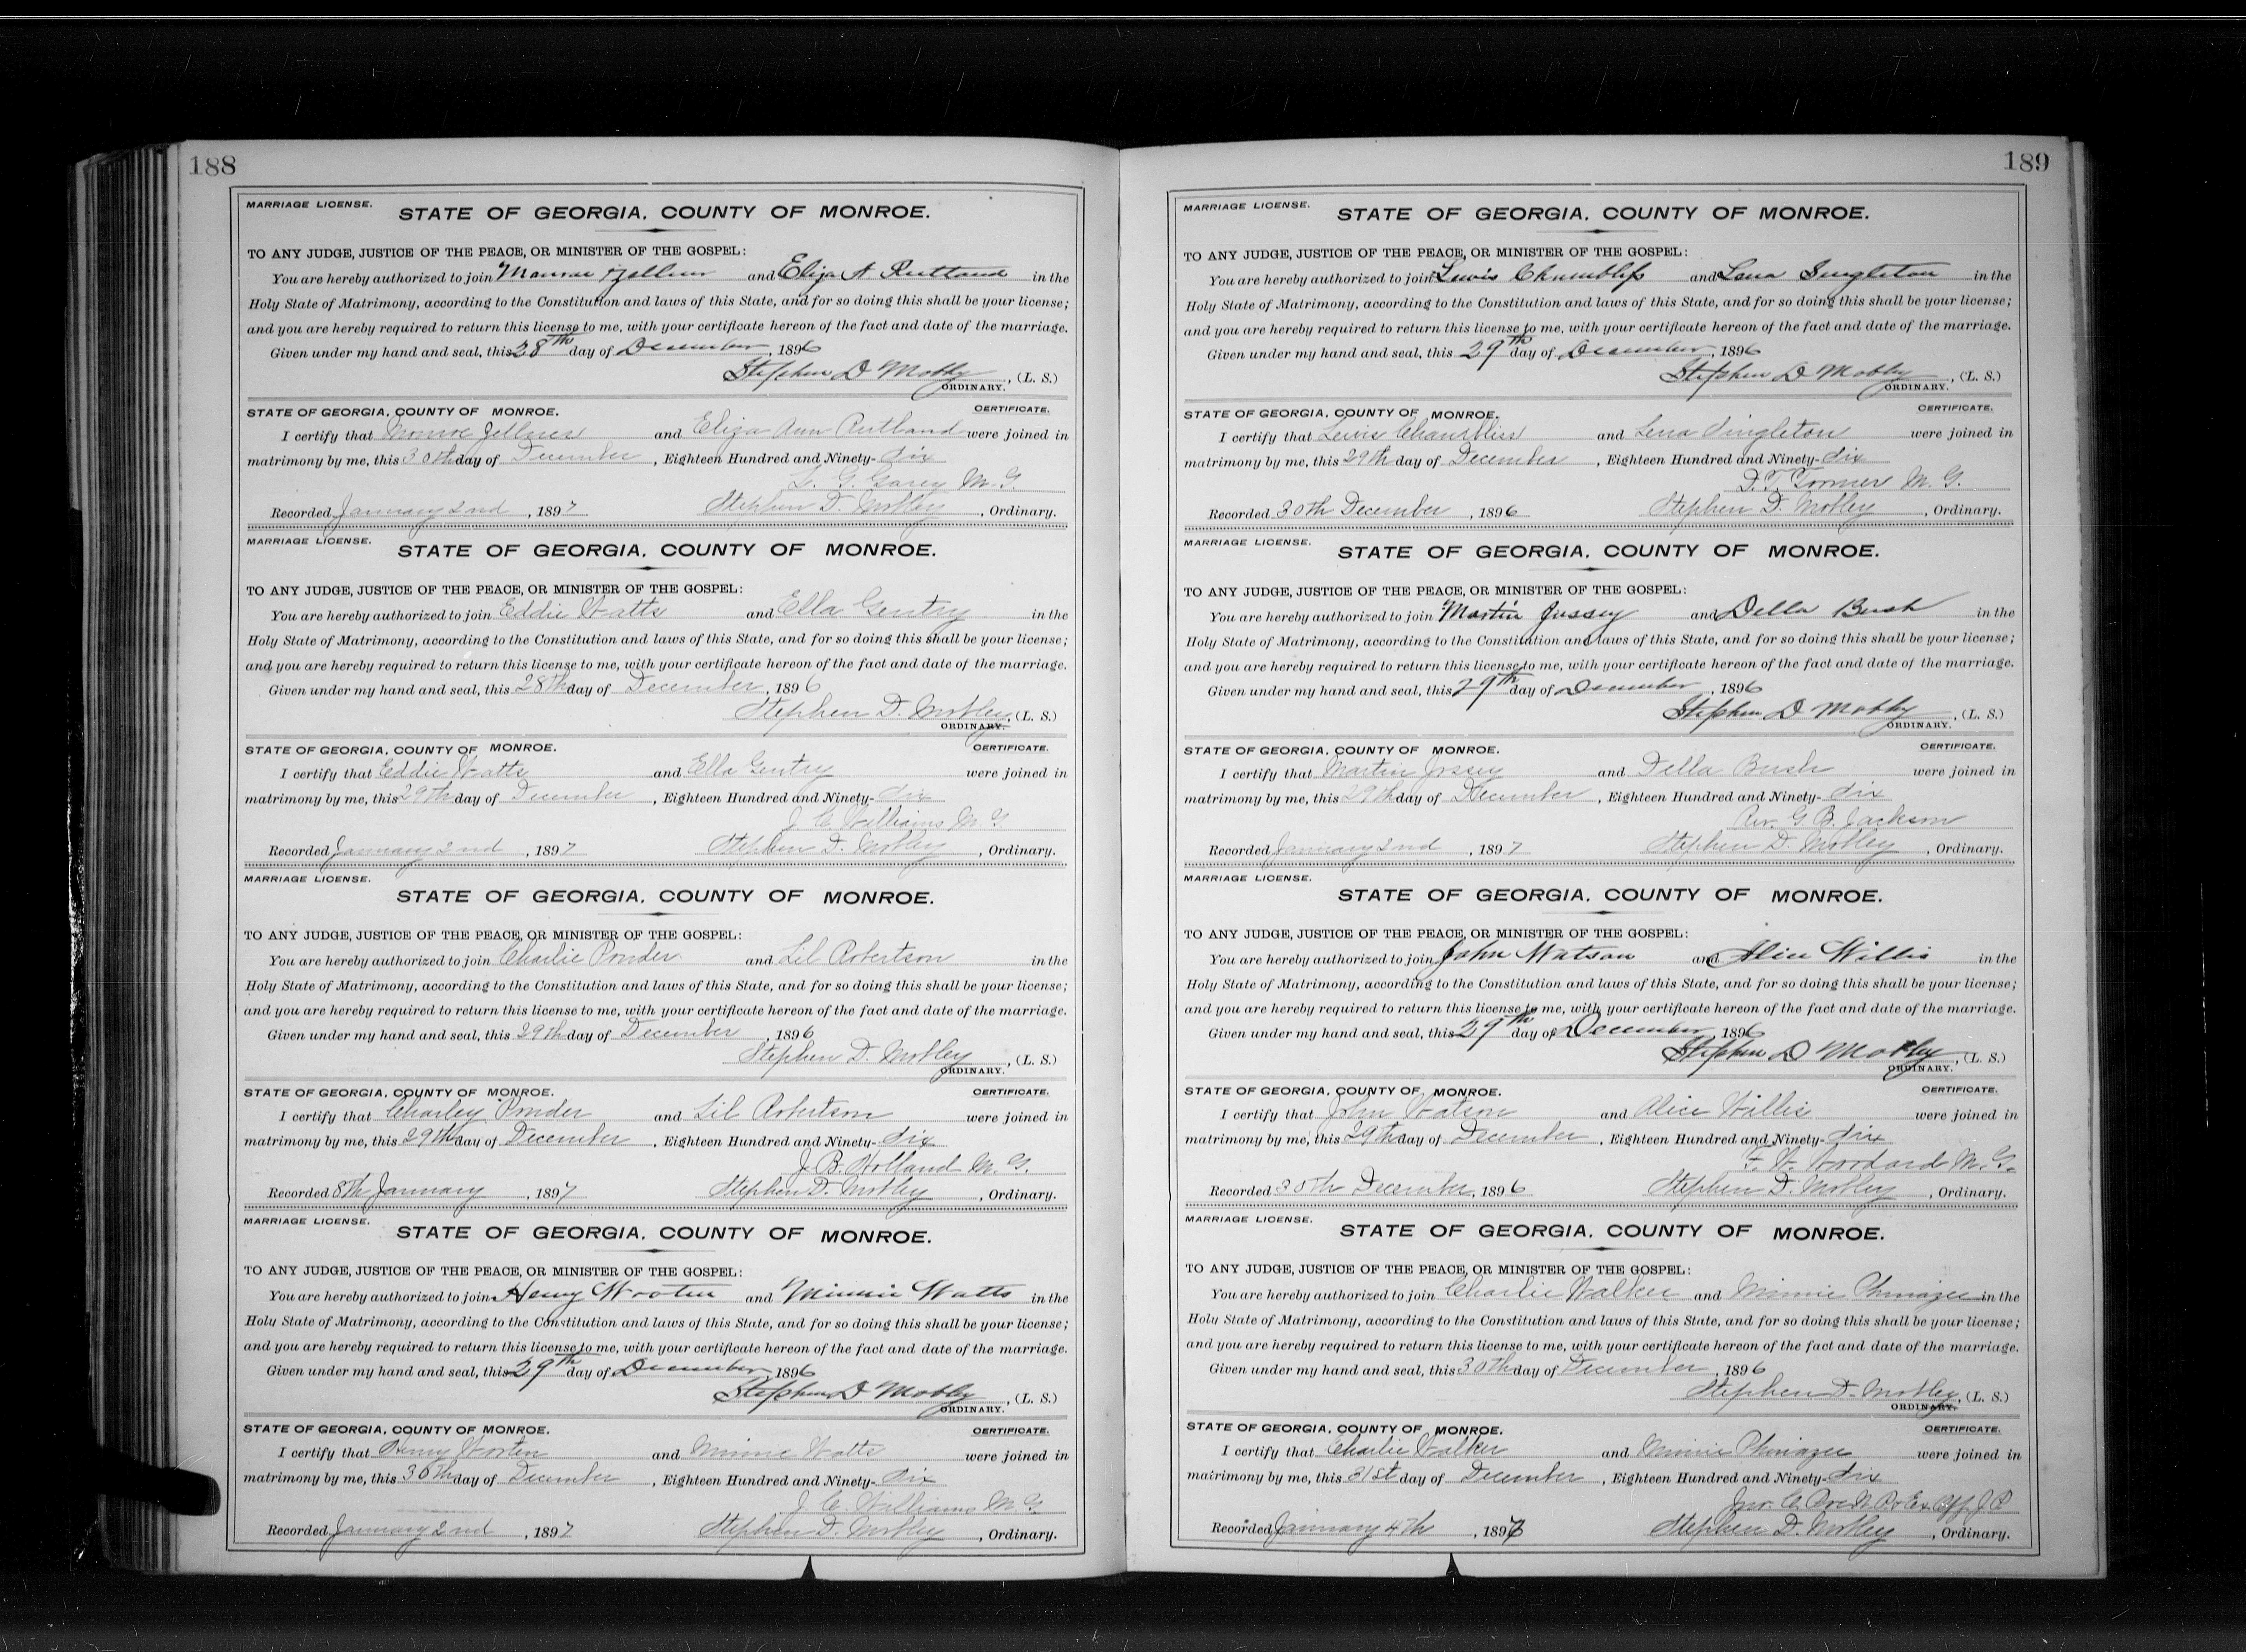 188
MARRIAGE LICENSE.
STATE OF GEORGIA, COUNTY OF MONROE.
TO ANY JUDGE, JUSTICE OF THE PEACE, OR MINISTER OF THE GOSPEL:
You are hereby authorized to join Monroe and Eliza A. Rutland in the
Holy State of Matrimony, according to the Constitution and laws of this State, and for so doing this shall be your license;
and you are hereby required to return this license to me, with your certificate hereon of the fact and date of the marriage.
Given under my hand and seal, this 28th day of December, 1896
Stephen D Mobley, (L. S.)
ORDINARY.
STATE OF GEORGIA, COUNTY OF MONROE. CERTIFICATE.
I certify that Monroe and Eliza Ann Rutland were joined in
matrimony by me, this 30th day of December, Eighteen Hundred and Ninety-six
M. G.
Recorded January 2nd, 1897 Stephen D. Mobley, Ordinary.
MARRIAGE LICENSE.
STATE OF GEORGIA, COUNTY OF MONROE.
TO ANY JUDGE, JUSTICE OF THE PEACE, OR MINISTER OF THE GOSPEL:
You are hereby authorized to join Eddie Watts and Ella Gentry in the
Holy State of Matrimony, according to the Constitution and laws of this State, and for so doing this shall be your license;
and you are hereby required to return this license to me, with your certificate hereon of the fact and date of the marriage.
Given under my hand and seal, this 28th day of December, 1896
Stephen D. Mobley, (L. S.)
ORDINARY.
STATE OF GEORGIA, COUNTY OF MONROE. CERTIFICATE.
I certify that Eddie Watts and Ella Gentry were joined in
matrimony by me, this 29th day of December, Eighteen Hundred and Ninety-six
J. C. Williams M. G.
Recorded January 2nd, 1897 Stephen D. Mobley, Ordinary.
MARRIAGE LICENSE.
STATE OF GEORGIA, COUNTY OF MONROE.
TO ANY JUDGE, JUSTICE OF THE PEACE, OR MINISTER OF THE GOSPEL:
You are hereby authorized to join Charlie Ponder and Lil Robertson in the
Holy State of Matrimony, according to the Constitution and laws of this State, and for so doing this shall be your license;
and you are hereby required to return this license to me, with your certificate hereon of the fact and date of the marriage.
Given under my hand and seal, this 29th day of December, 1896
Stephen D. Mobley, (L. S.)
ORDINARY.
STATE OF GEORGIA, COUNTY OF MONROE. CERTIFICATE.
I certify that Charley Ponder and Lil Robertson were joined in
matrimony by me, this 29th day of December, Eighteen Hundred and Ninety-six
J. B. Holland M. G.
Recorded 8th January, 1897 Stephen D. Mobley, Ordinary.
MARRIAGE LICENSE.
STATE OF GEORGIA, COUNTY OF MONROE.
TO ANY JUDGE, JUSTICE OF THE PEACE, OR MINISTER OF THE GOSPEL:
You are hereby authorized to join Henry Wooten and Minnie Watts in the
Holy State of Matrimony, according to the Constitution and laws of this State, and for so doing this shall be your license;
and you are hereby required to return this license to me, with your certificate hereon of the fact and date of the marriage.
Given under my hand and seal, this 29th day of December, 1896
Stephen D Mobley, (L. S.)
ORDINARY.
STATE OF GEORGIA, COUNTY OF MONROE. CERTIFICATE.
I certify that Henry Wooten and Minnie Watts were joined in
matrimony by me, this 30th day of December, Eighteen Hundred and Ninety-six
J. C. Williams M G
Recorded January 2nd, 1897 Stephen D. Mobley, Ordinary.
189
MARRIAGE LICENSE.
STATE OF GEORGIA, COUNTY OF MONROE.
TO ANY JUDGE, JUSTICE OF THE PEACE, OR MINISTER OF THE GOSPEL:
You are hereby authorized to join Lewis Chumbliss and Lena Singleton in the
Holy State of Matrimony, according to the Constitution and laws of this State, and for so doing this shall be your license;
and you are hereby required to return this license to me, with your certificate hereon of the fact and date of the marriage.
Given under my hand and seal, this 29th day of December, 1896
Stephen D Mobley, (L. S.)
ORDINARY.
STATE OF GEORGIA, COUNTY OF MONROE. CERTIFICATE.
I certify that Lewis Chambliss and Lena Singleton were joined in
matrimony by me, this 29th day of December, Eighteen Hundred and Ninety-six
D. T. M. G.
Recorded 30th December, 1896 Stephen D. Mobley, Ordinary.
MARRIAGE LICENSE.
STATE OF GEORGIA, COUNTY OF MONROE.
TO ANY JUDGE, JUSTICE OF THE PEACE, OR MINISTER OF THE GOSPEL:
You are hereby authorized to join Martin Jossey and Della Bush in the
Holy State of Matrimony, according to the Constitution and laws of this State, and for so doing this shall be your license;
and you are hereby required to return this license to me, with your certificate hereon of the fact and date of the marriage.
Given under my hand and seal, this 29th day of December, 1896
Stephen D Mobley, (L. S.)
ORDINARY.
STATE OF GEORGIA, COUNTY OF MONROE. CERTIFICATE.
I certify that Martin Jossey and Della Bush were joined in
matrimony by me, this 29th day of December, Eighteen Hundred and Ninety-six
Rev. G. B. Jackson
Recorded January 2nd, 1897 Stephen D. Mobley, Ordinary.
MARRIAGE LICENSE.
STATE OF GEORGIA, COUNTY OF MONROE.
TO ANY JUDGE, JUSTICE OF THE PEACE, OR MINISTER OF THE GOSPEL:
You are hereby authorized to join John Watson and Alice Willis in the
Holy State of Matrimony, according to the Constitution and laws of this State, and for so doing this shall be your license;
and you are hereby required to return this license to me, with your certificate hereon of the fact and date of the marriage.
Given under my hand and seal, this 29th day of December, 1896
Stephen D Mobley, (L. S.)
ORDINARY.
STATE OF GEORGIA, COUNTY OF MONROE. CERTIFICATE.
I certify that John Watson and Alice Willis were joined in
matrimony by me, this 29th day of December, Eighteen Hundred and Ninety-six
F. W. Woodard M. G.
Recorded 30th December, 1896 Stephen D. Mobley, Ordinary.
MARRIAGE LICENSE.
STATE OF GEORGIA, COUNTY OF MONROE.
TO ANY JUDGE, JUSTICE OF THE PEACE, OR MINISTER OF THE GOSPEL:
You are hereby authorized to join Charlie Walker and Minnie Phinazee in the
Holy State of Matrimony, according to the Constitution and laws of this State, and for so doing this shall be your license;
and you are hereby required to return this license to me, with your certificate hereon of the fact and date of the marriage.
Given under my hand and seal, this 30th day of December, 1896
Stephen D. Mobley, (L. S.)
ORDINARY.
STATE OF GEORGIA, COUNTY OF MONROE. CERTIFICATE.
I certify that Charlie Walker and Minnie Phinazee were joined in
matrimony by me, this 31st day of December, Eighteen Hundred and Ninety-six
Jno. C. Ex. Off. J P
Recorded January 4th, 1897 Stephen D. Mobley, Ordinary.